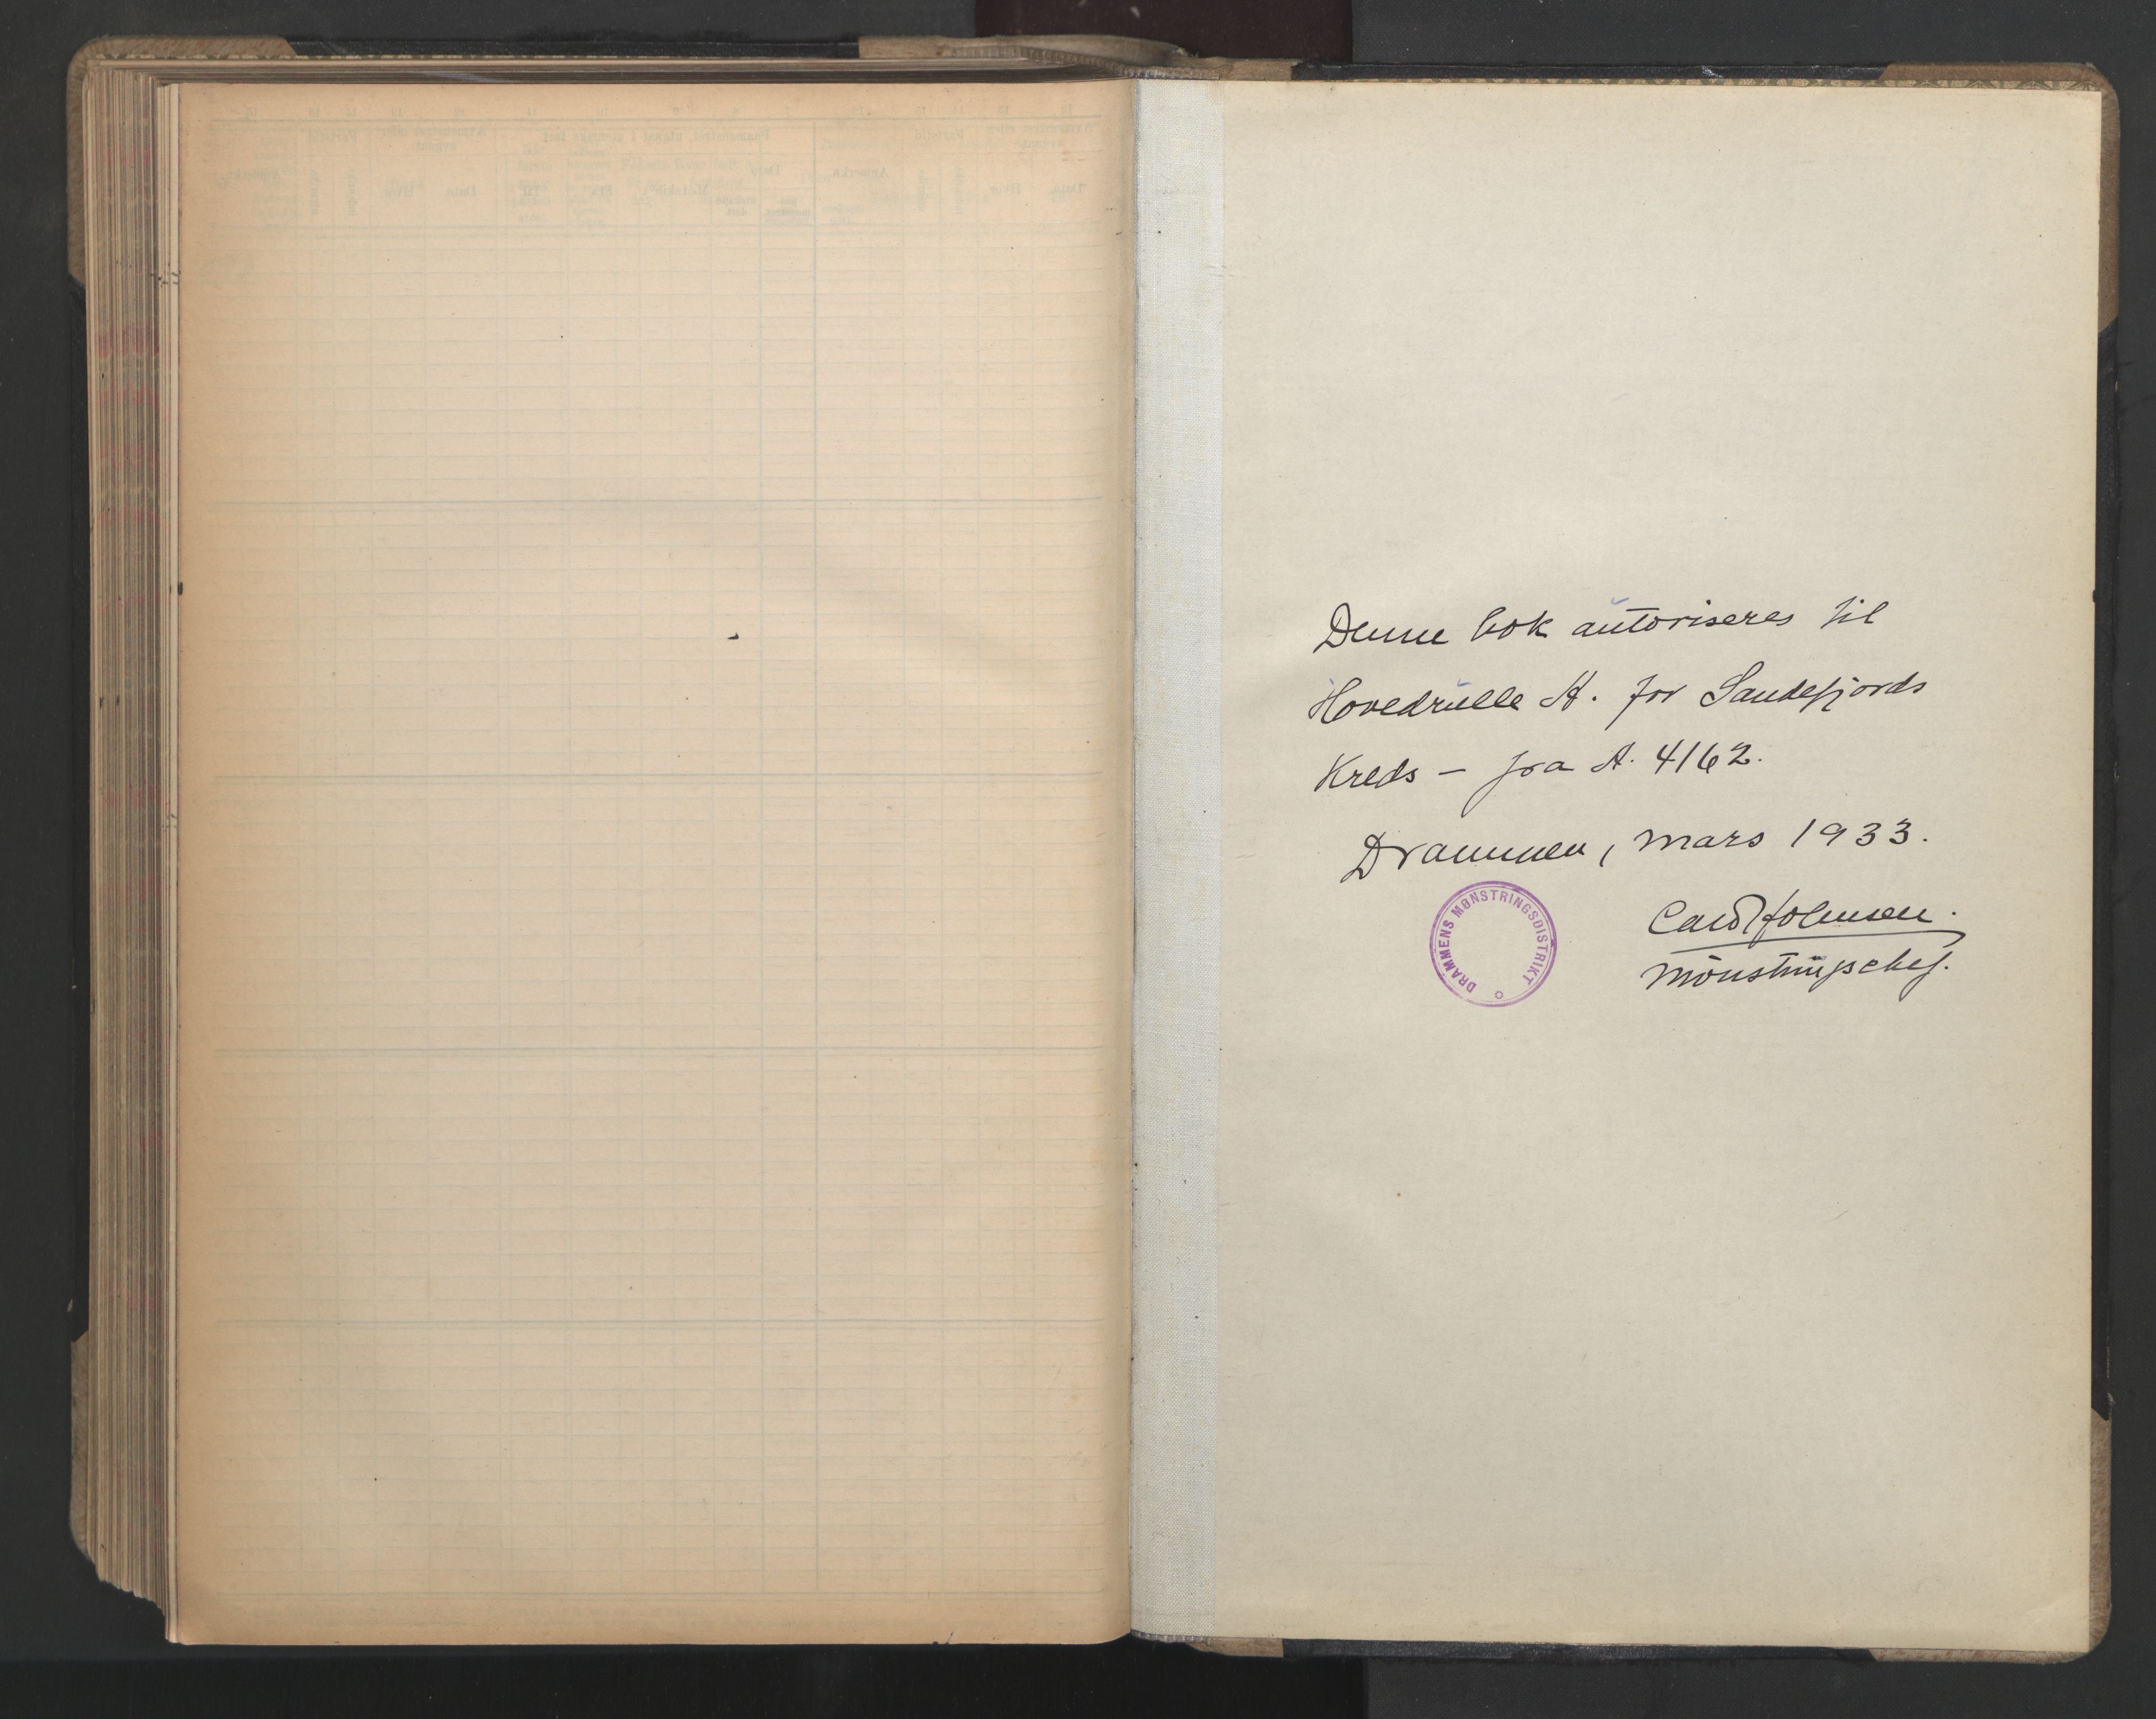 Denne bok autoriseres til
Hovedrulle A. for Sandefjords
Kreds - fra A. 4162.
Drammen, mars 1933.
DRAMMENS MØNSTRINGSDISTRIKT
Mönstringschef.